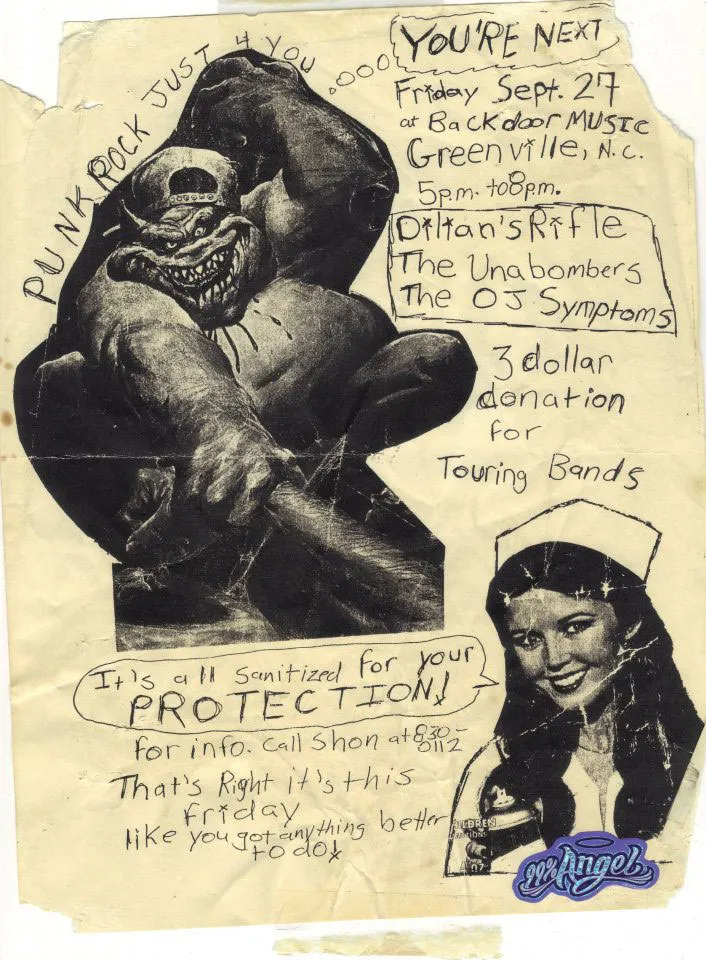 PUNK ROCK JUST 4 YOU .oooo
YOU'RE NEXT
Friday Sept. 27
at Backdoor MUSIC
Greenville, N.C.
5p.m. to 8p.m.
Dillan's Rifle
The Unabombers
The OJ Symptoms
3 dollar
donation
for
Touring Bands
It's all sanitized for your
PROTECTION!
for info. call Shon at 830-
0112
That's Right it's this
friday
like you got anything better
to do!
99% Angel